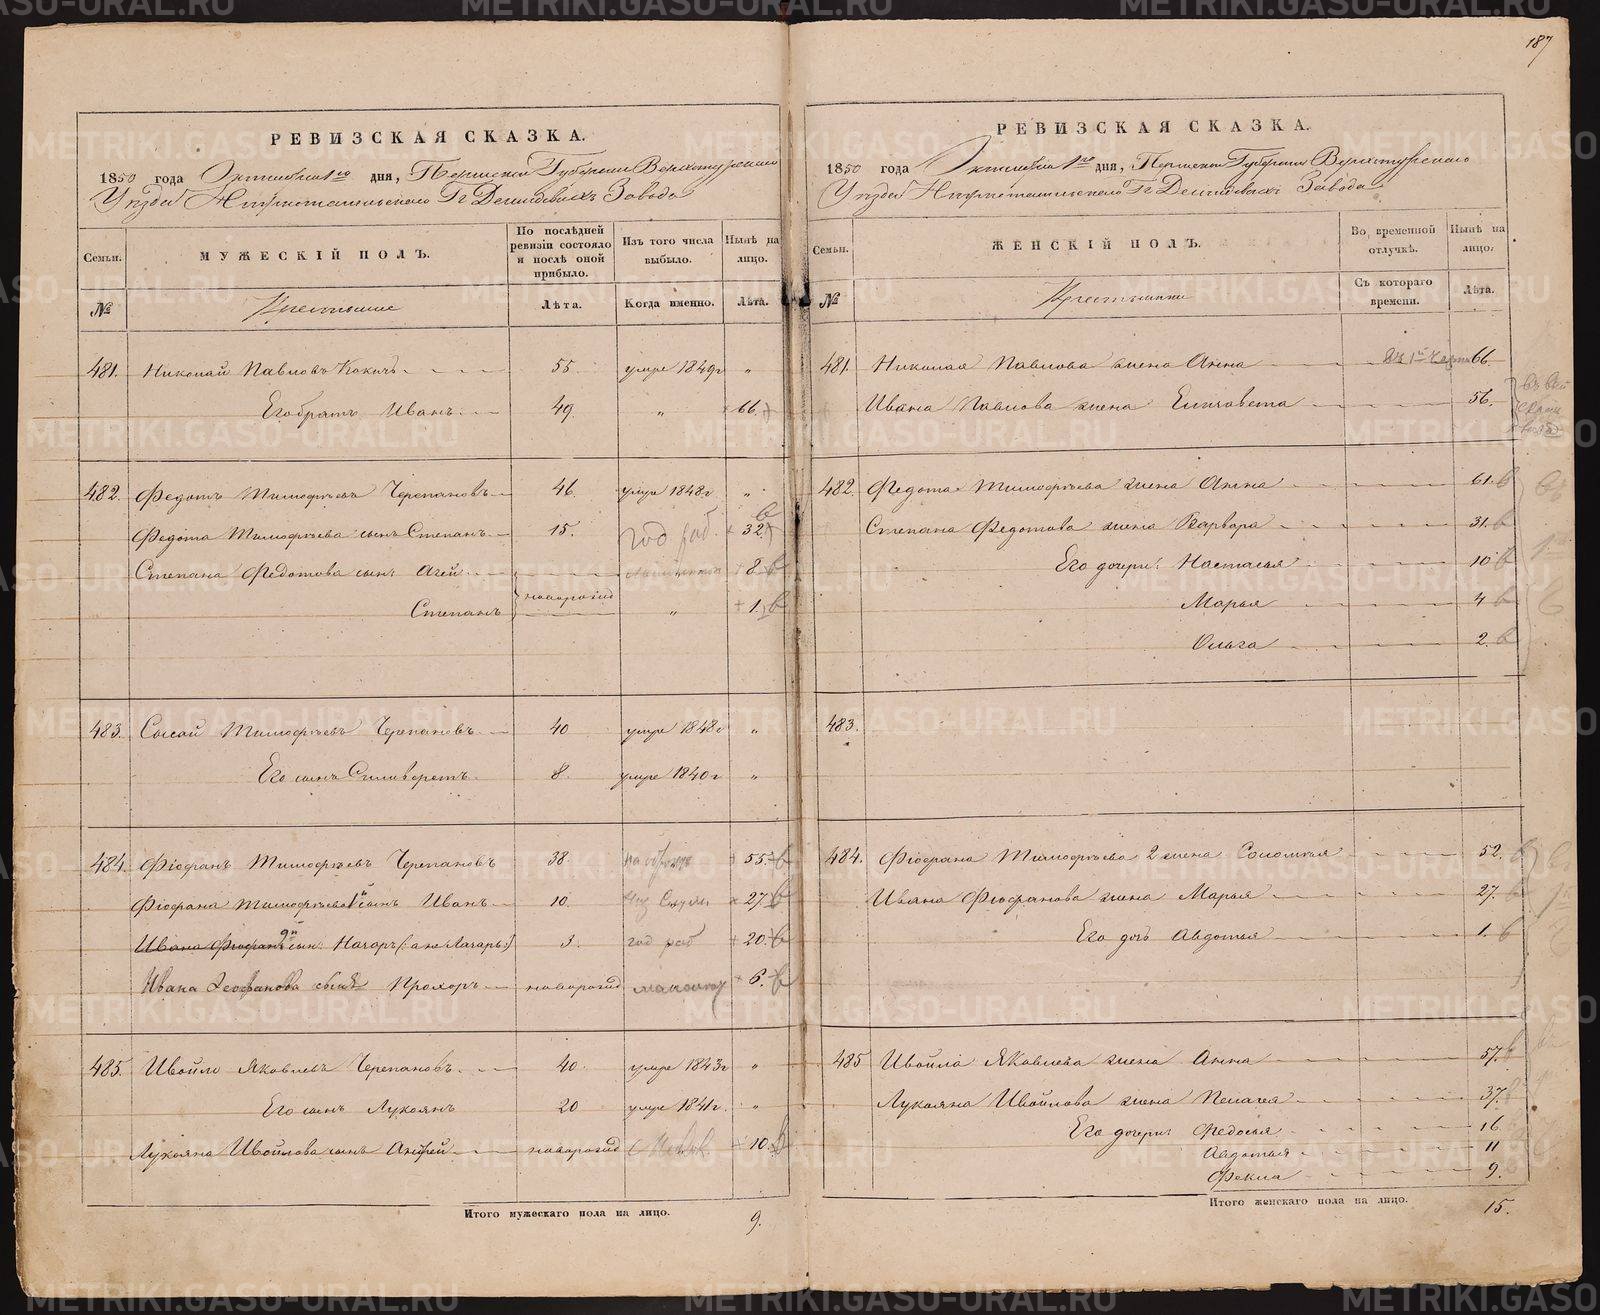 187
РЕВИЗСКАЯ СКАЗКА.
1850 года Октября 1го дня, Пермской Губернии Верхотурского
Уезда Нижнетагильского Гг Демидовыхъ Завода
Семьи. МУЖЕСКІЙ ПОЛЪ. По послѣдней ревизіи состояло и послѣ оной прибыло. Изъ того числа выбыло. Нынѣ на лицо.
№ Крестьяне Лѣта. Когда именно. Лѣта.
481. Николай Павловъ 55 умре 1849г "
Его братъ Иванъ 49. " 66.
482. Федотъ Тимофѣевъ Черепановъ 46. умре 1848г "
Федота Тимофѣева сынъ Степанъ 15. год раб. 32.
Степана Федотова сынъ Агей 8
новорожд
Степанъ " 1.
483. Сысой Тимофѣевъ Черепановъ 40 умре 1848г "
Его сынъ Силиверстъ 8. умре 1840г "
484. Фіофанъ Тимофѣевъ Черепановъ 38 55.
Фіофана Тимофѣева 1й сынъ Иванъ 10. 27
Ивана Фіофан 2й сын: Назаръ (: а не Лазарь :) 3. год раб 20.
Ивана Феофанова сынъ Прохоръ новорожд 6.
485. Ивойло Яковлевъ Черепановъ 40. умре 1843г "
Его сынъ Лукоянъ 20 умре 1841г. "
Лукояна Ивойлова сынъ новорожд 10.
Итого мужескаго пола на лицо. 9.
РЕВИЗСКАЯ СКАЗКА.
1850 года Октября 1го дня, Пермской Губернии Верхотурского
Уезда Нижнетагильского Гг Демидовыхъ Завода
Семьи. ЖЕНСКІЙ ПОЛЪ. Во временной отлучкѣ. Нынѣ на лицо.
№ Крестьянки Съ котораго времени. Лѣта.
481. Николая Павлова жена Анна 66.
Ивана Павлова жена Елизовета 56.
482. Федота Тимофѣева жена Анна 61.
Степана Федотова жена Варвара 31.
Его дочери: Настасья 10
Марья 4
Ольга 2.
483.
484. Фіофана Тимофѣева 2 жена Соломея 52.
Ивана Фіофанова жена Марья 27.
Его дочь Авдотья 1.
485 Ивойла Яковлева жена Анна 57.
Лукояна Ивойлова жена Пелагея 37.
Его дочери: Федосья 16
Авдотья 11
Фекла 9.
Итого женскаго пола на лицо. 15.
METRIKI.GASO-URAL.RU